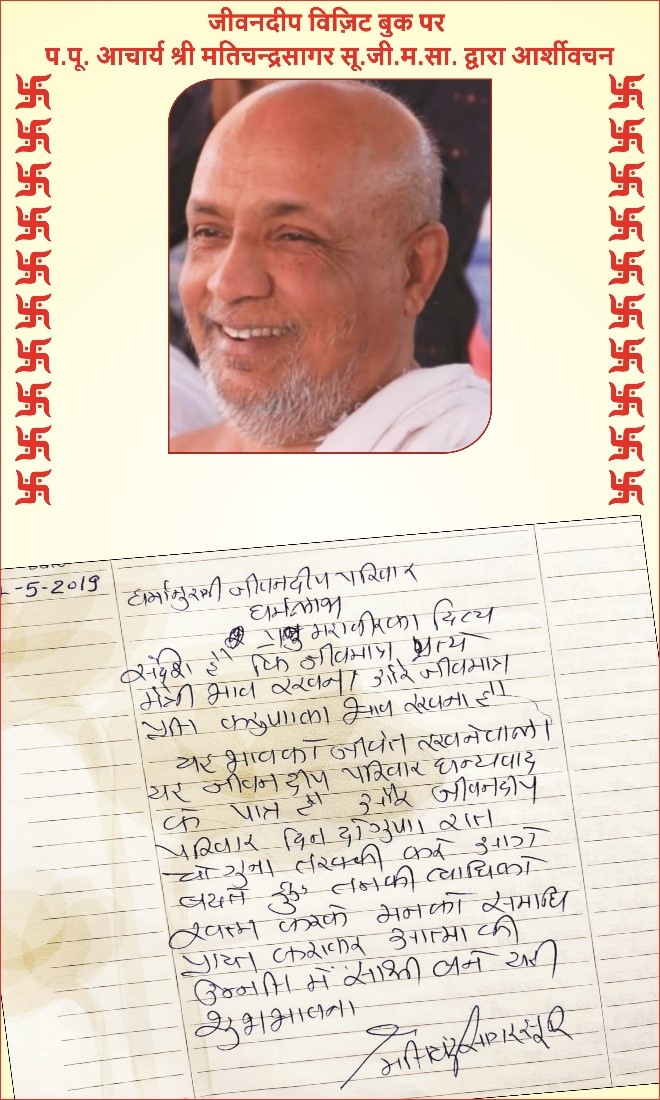 जीवनदीप विज़िट बुक पर
प.पू. आचार्य श्री मतिचन्द्रसागर सू.जी.म.सा. द्वारा आर्शीवचन
-5-2019
धर्मानुरागी जीवनदीप परिवार
धर्मलाभ
प्रभु महावीरका दिव्य
संदेश है कि जीवमात्र प्रत्ये
मैत्री भाव रखना और जीवमात्र
प्रति करुणाका भाव रखना है।
यह भावको जीवंत रखनेवाला
यह जीवनदीप परिवार धन्यवाद
के पात्र है और जीवनदीप
परिवार दिन दोगुणा रात
चोगुना तरक्की करे आगे
बढते हुए तनकी व्याधिको
खत्म करके मनको समाधि
प्राप्त कराकर आत्मा की
उन्नति में साक्षी बने यही
शुभभावना
मतिचंद्रसागरसूरि